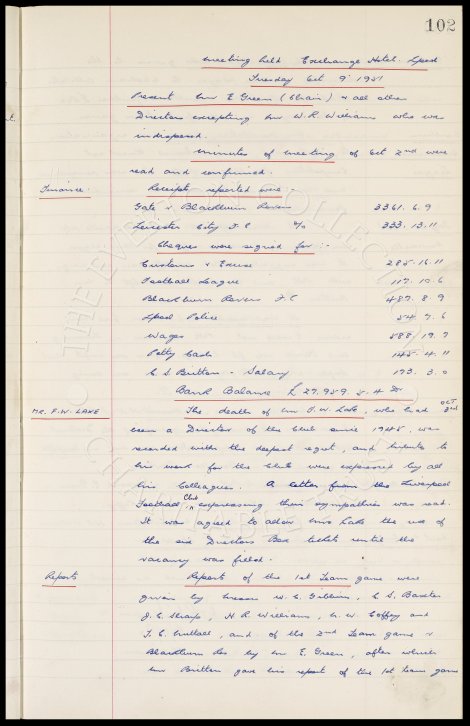 102
Meeting held Exchange Hotel. Lpool
Tuesday Oct 9th 1951
Present Mr E Green (Chair) & all other
Directors excepting Mr W.R. Williams who was
indisposed.
Minutes of meeting of Oct 2nd were
read and confirmed.
Finance.
Receipts reported were
Gate v Blackburn Rovers 3361. 6. 9
Leicester City F.C. % 333. 13. 11
Cheques were signed for :-
Customs & Excise 285. 16. 11
Football League 117. 10. 6
Blackburn Rovers F.C 487. 8. 9
Lpool Police 54. 7. 6
Wages 588. 19. 7
Petty Cash 145. 4. 11
C S Britton - Salary 173. 3. 0
Bank Balance £ 27.959. 5. 4 Dr
MR. F.W. LAKE
The death of Mr F.W. Lake, who had OCT 3rd
been a Director of the Club since 1945, was
recorded with the deepest regret, and tribute to
his work for the Club were expressed by all
his Colleagues. A letter from the Liverpool
Football Club expressing their sympathies was read.
It was agreed to allow Mrs Lake the use of
the six Directors Box tickets until the
vacancy was filled.
Reports
Reports of the 1st Team game were
given by Messrs W. C. Gibbins, C. S. Baxter
J. C. Sharp, H R. Williams, W. W. Coffey and
T. C. Nuttall, and of the 2nd Team game v
Blackburn Res by Mr E. Green, after which
Mr Britton gave his report of the 1st team game
THE EVERTON COLLECTION
CHARITABLE TRUST